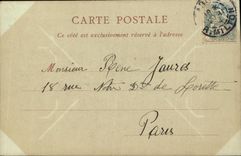 CARTE POSTALE
Ce côté est exclusivement réservé à l'adresse
Monsieur René Jaures
18 rue Notre D. de Lorette
Paris